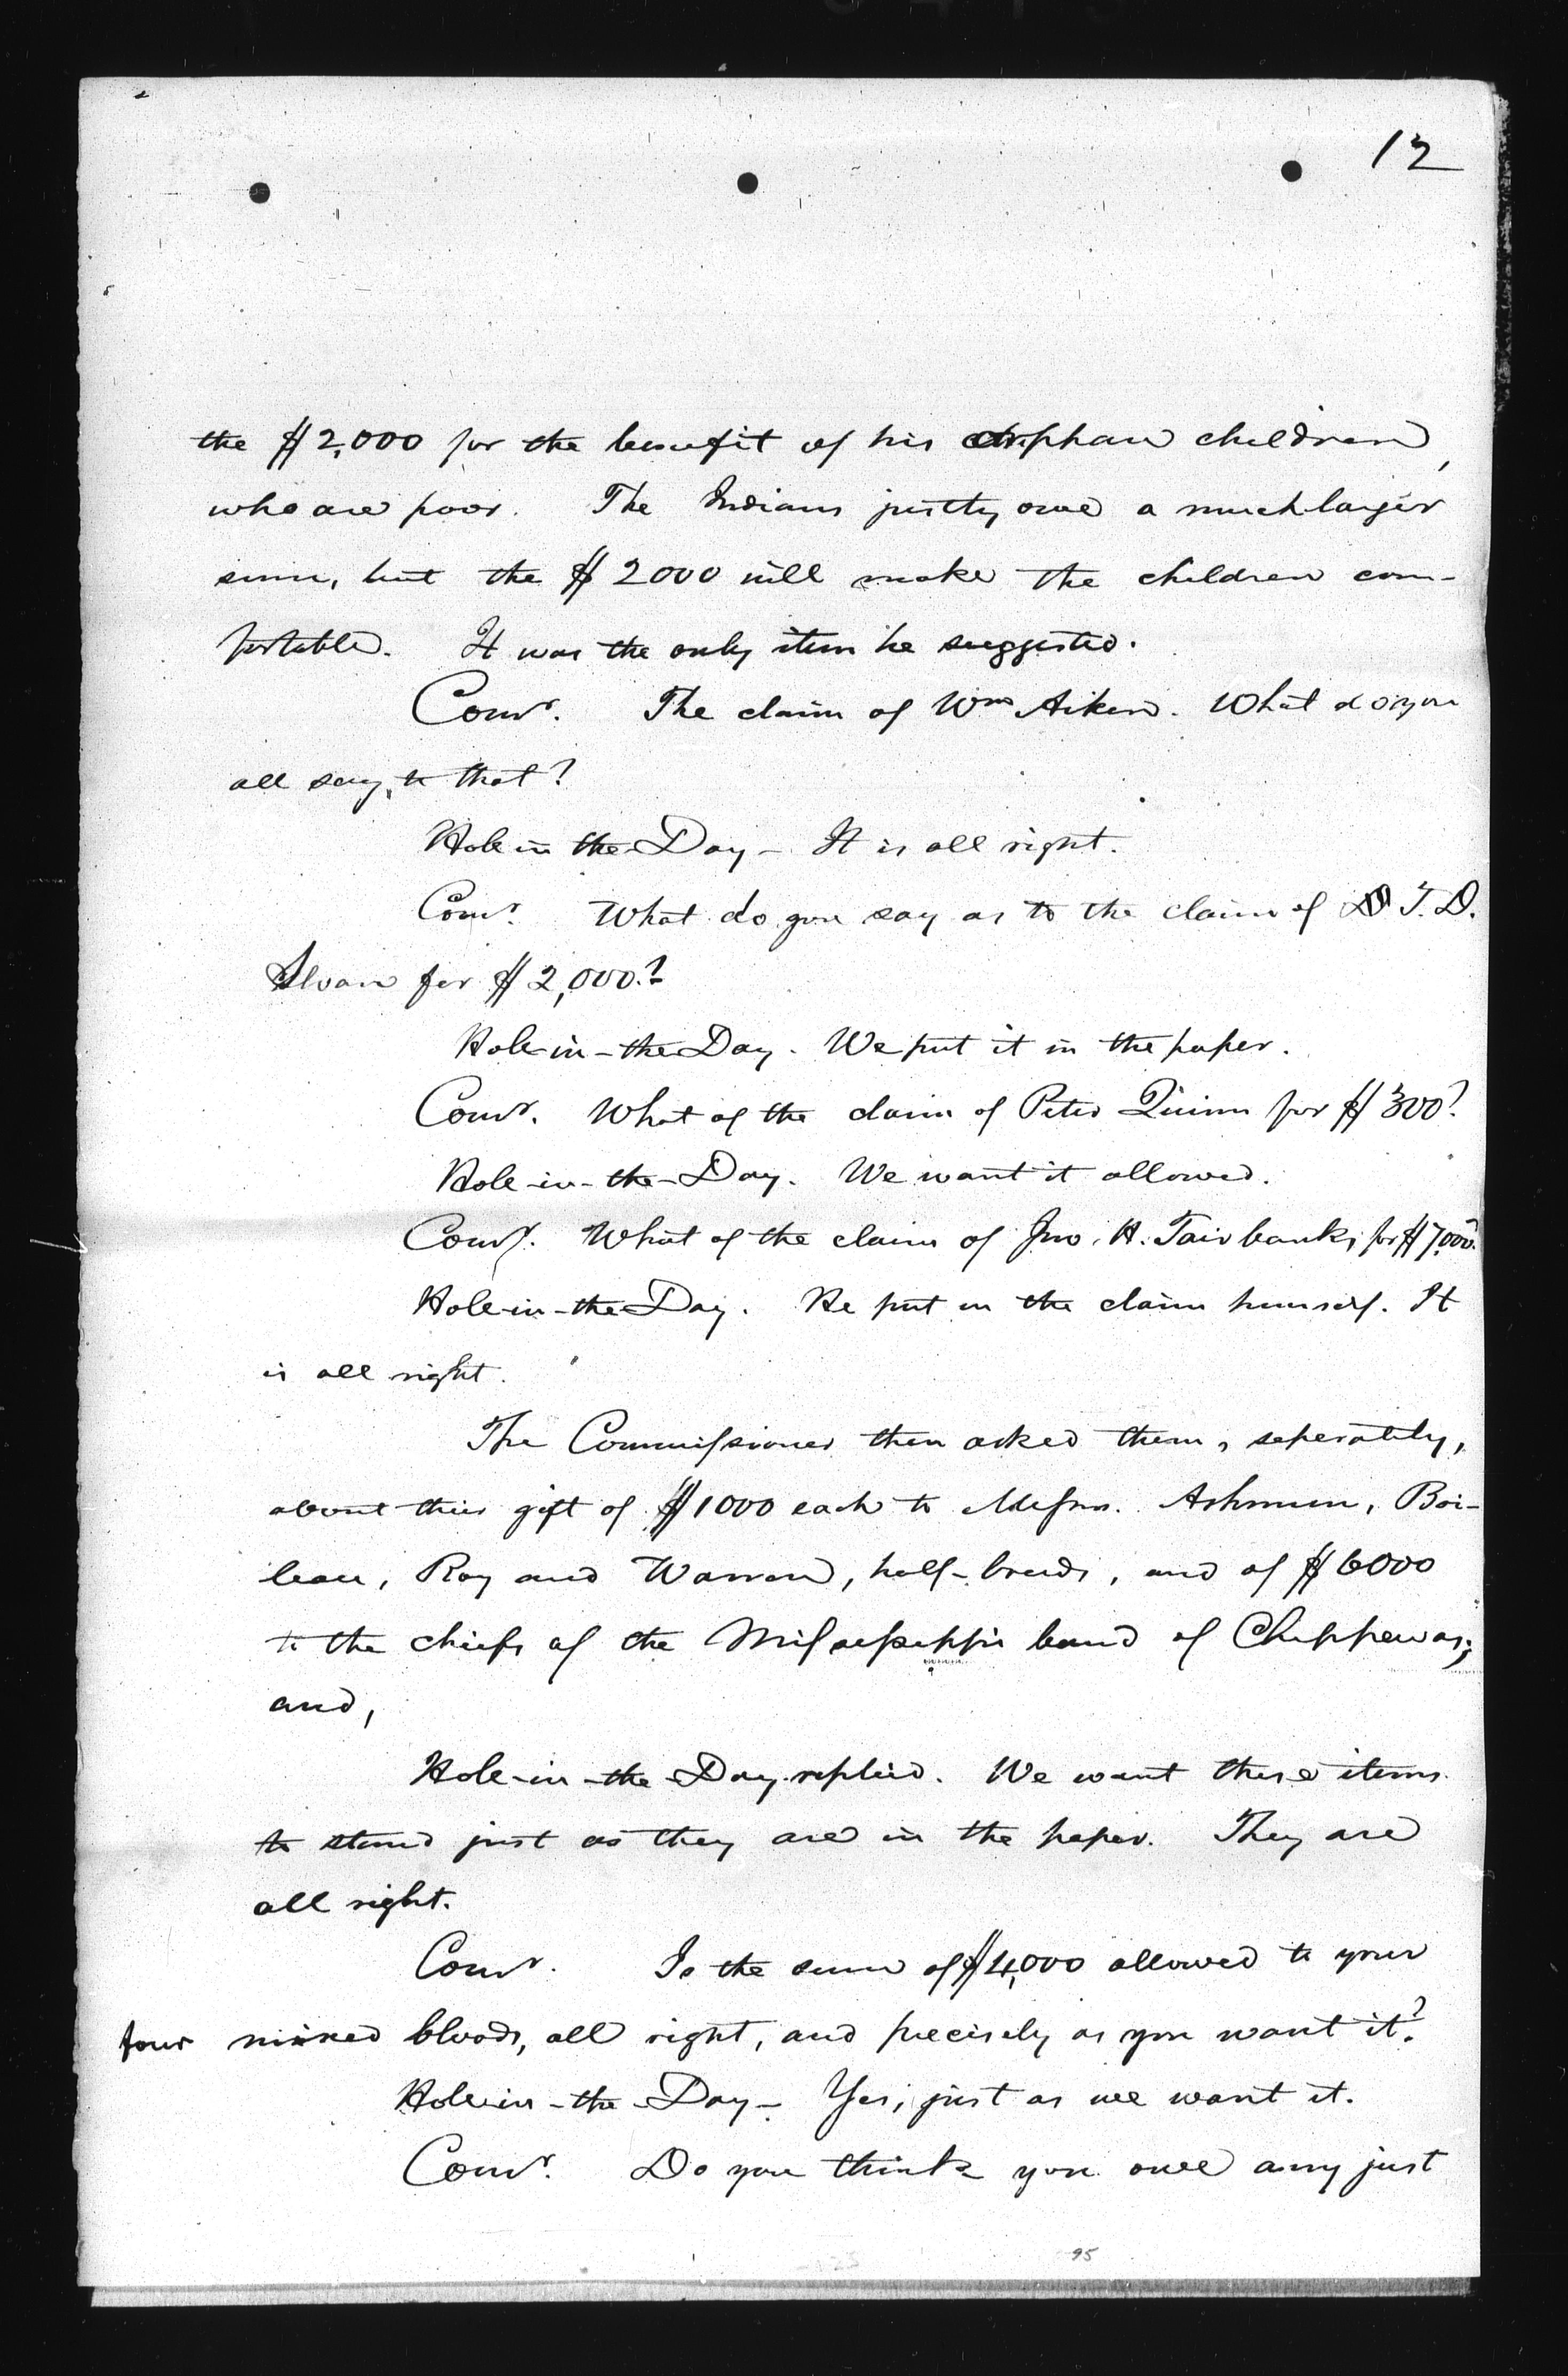 12
the $2,000 for the benefit of his orphan children,
who are poor. The Indians justly owe a much larger
sum, but the $2000 will make the children com-
fortable. It was the only item he suggested.
Comr. The claim of Wm Aiken. What do you
all say, to that?
Hole in the Day – It is all right.
Comr. What do you say as to the claim of T. D.
Sloan for $2,000.?
Hole-in-the-Day. We put it in the paper.
Comr. What of the claim of Peter Quinn for $300?
Hole-in-the-Day. We want it allowed.
Comr. What of the claim of Jno. H. Fairbanks, for $7,000?
Hole-in-the-Day. He put in the claim himself. It
is all right.
The Commissioner then asked them, seperately,
about their gift of $1000 each to Messrs. Ashmun, Boi-
leau, Roy and Warren, half-breeds, and of $6000
to the chiefs of the Mississippi band of Chippewas;
and,
Hole-in-the-Day replied. We want these items
to stand just as they are in the paper. They are
all right.
Comr. Is the sum of $4,000 allowed to your
four mixed bloods, all right, and precisely as you want it?
Hole-in-the-Day – Yes, just as we want it.
Comr. Do you think you owe any just
95